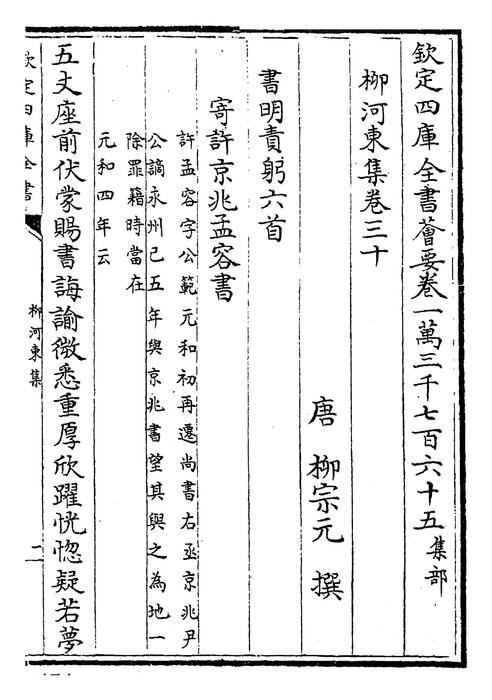 欽定四庫全書薈要卷一萬三千七百六十五集部
柳河東集卷三十
唐 柳宗元 撰
書明責躬六首
寄許京兆孟容書
許孟容字公範元和初再遷尚書右丞京兆尹
公謫永州已五年與京兆書望其與之為地一
除罪籍時當在
元和四年云
五丈座前伏蒙賜書誨諭微悉重厚欣躍恍惚疑若夢
欽定四庫全書
柳河東集
二